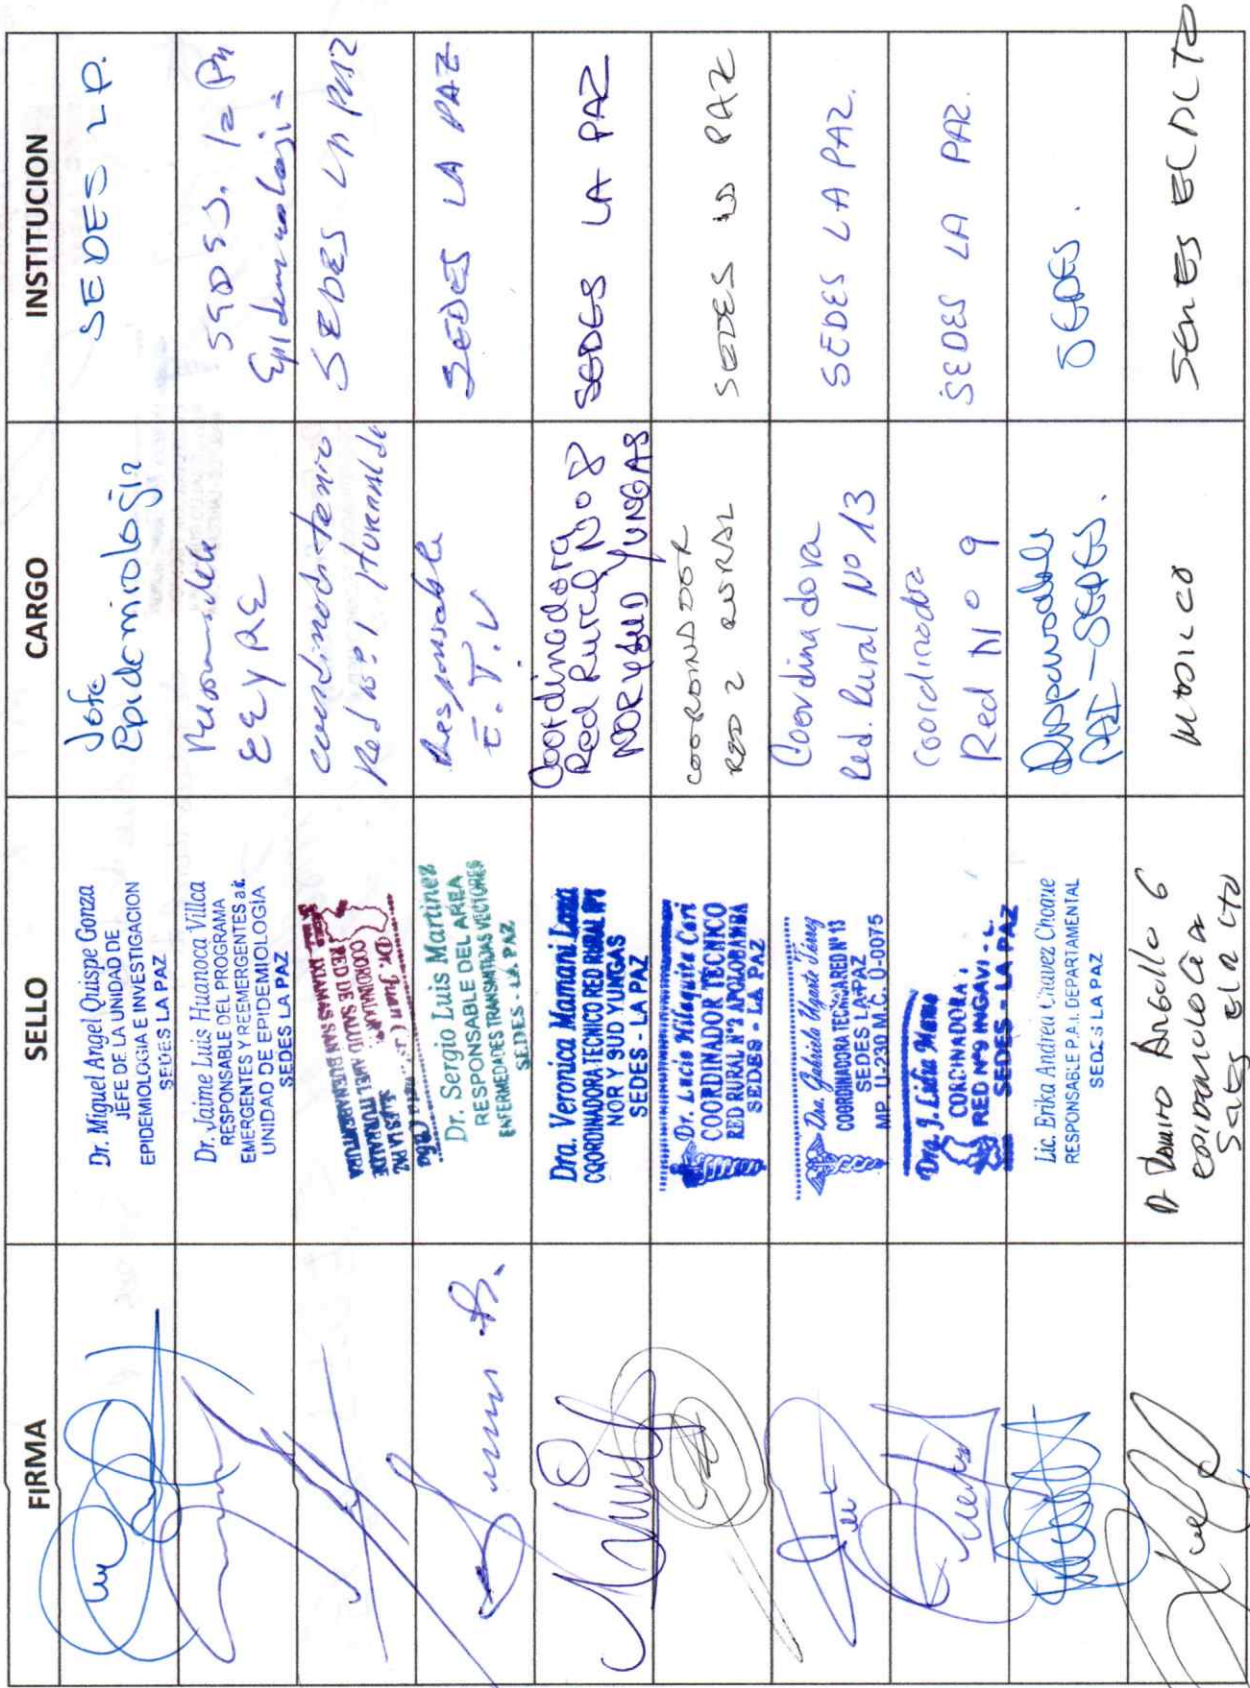 FIRMA
SELLO
CARGO
INSTITUCION
Dr. Miguel Angel Quispe Gonza
JEFE DE LA UNIDAD DE
EPIDEMIOLOGIA E INVESTIGACION
SEDES LA PAZ
Jefe
Epidemiologia
SEDES LP.
Dr. Jaime Luis Huanoca Villca
RESPONSABLE DEL PROGRAMA
EMERGENTES Y REEMERGENTES a.i.
UNIDAD DE EPIDEMIOLOGÍA
SEDES LA PAZ
EEYRE
SEDES. La Paz
Epidemiologia
RED DE SALUD
Red Nº 1
SEDES LA PAZ
Dr. Sergio Luis Martinez
RESPONSABLE DEL AREA
ENFERMEDADES TRANSMITIDAS VECTORES
SEDES - LA PAZ
Responsable
E.T.V
SEDES LA PAZ
Dra. Veronica Mamani
COORDINADORA TECNICO RED RURAL
NOR Y SUD YUNGAS
SEDES - LA PAZ
Coordinadora
Red Rural No 8
NOR Y SUD YUNGAS
SEDES LA PAZ
Dr. Lucio Cari
COORDINADOR TECNICO
RED RURAL Nº2 APOLOBAMBA
SEDES - LA PAZ
COORDINADOR
RED 2 RURAL
SEDES LA PAZ
Dra. Gabriela Ugarte
COORDINADORA TECNICA RED Nº 13
SEDES LA PAZ
MP. U-230 M.C. U-0075
Coordinadora
Red. Rural Nº 13
SEDES LA PAZ.
Dra. J. Lidia
COORDINADORA
RED Nº9 INGAVI - L.
SEDES - LA PAZ
Coordinadora
Red Nº 9
SEDES LA PAZ.
Lic. Erika Andrea Chavez Choque
RESPONSABLE P.A.I. DEPARTAMENTAL
SEDES LA PAZ
Responsable
PAI - SEDES.
SEDES.
MEDICO